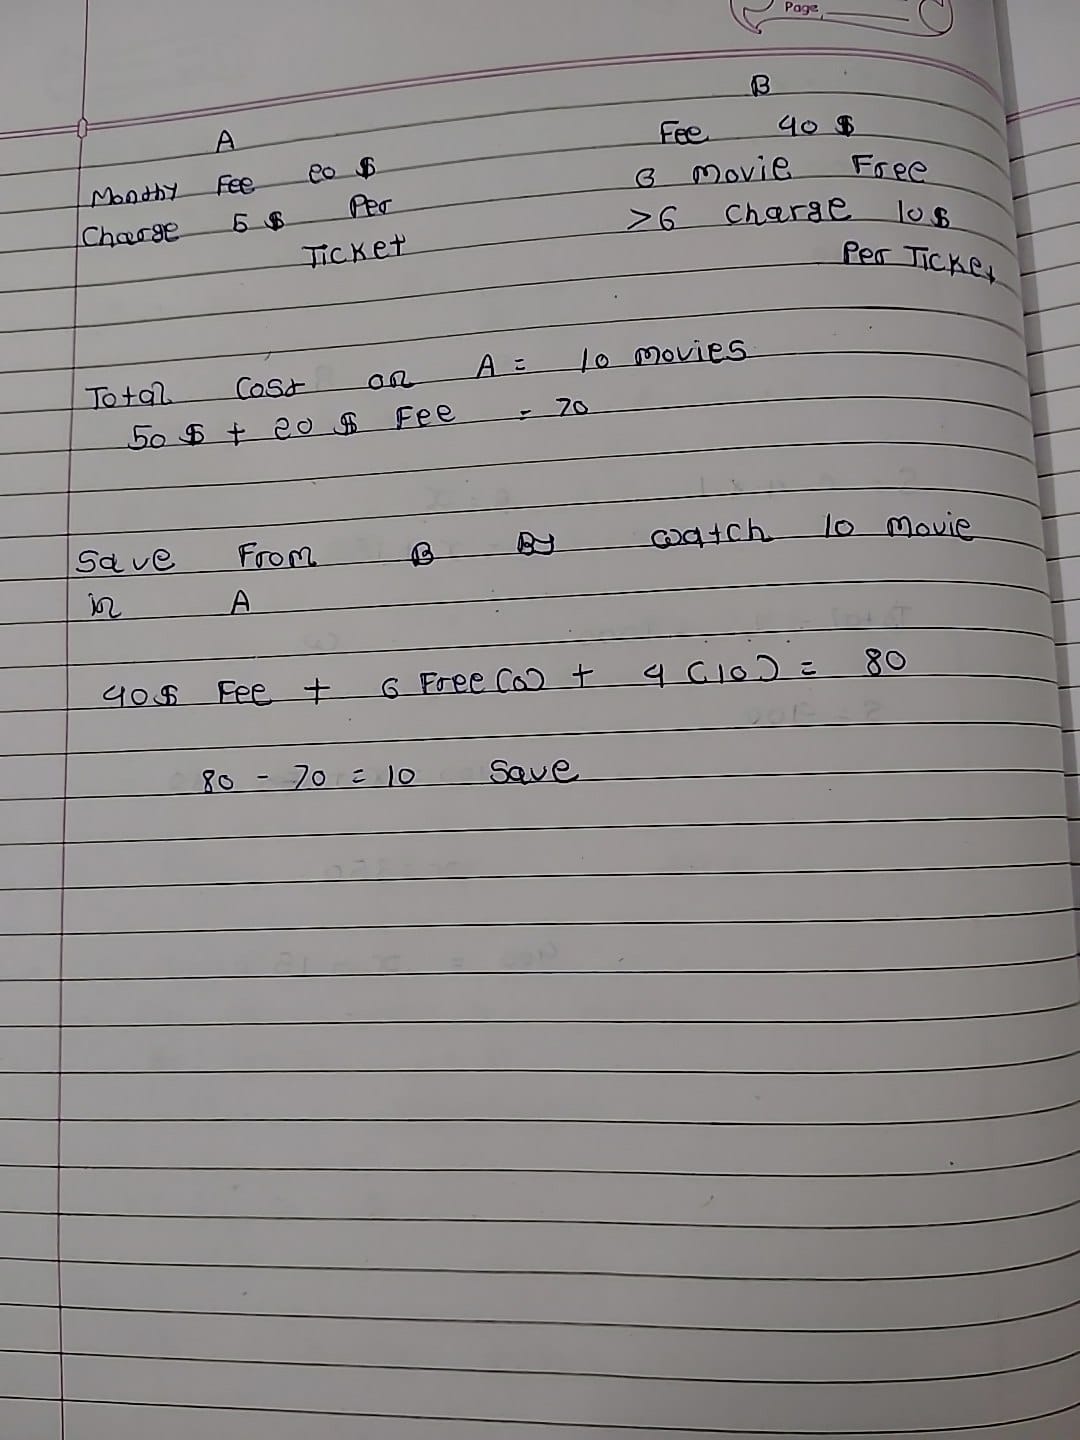 Page
A
Monthy Fee 20 $
Charge 5 $ Per
Ticket
B
Fee 40 $
6 movie Free
>6 charge 10$
Per Ticket
Total Cost on A = 10 movies
50 $ + 20 $ Fee = 70
Save From B By watch 10 movie
in A
40$ Fee + 6 Free (0) + 4 (10) = 80
80 - 70 = 10 Save